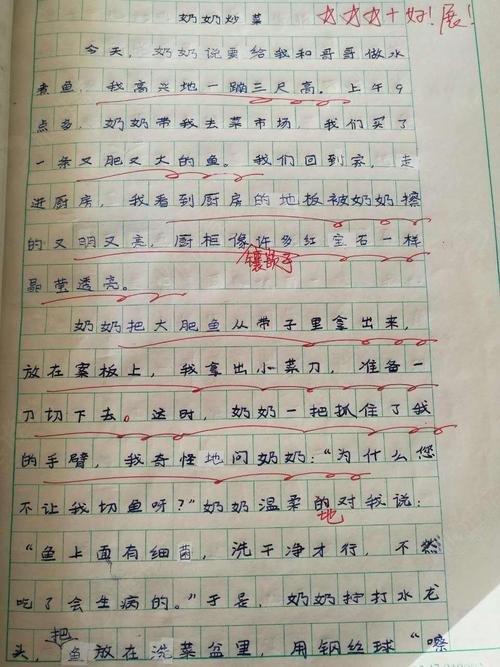 奶奶炒菜
好！展！
今天，奶奶说要给我和哥哥做水
煮鱼，我高兴地一蹦三尺高。上午9
点多，奶奶带我去菜市场，我们买了
一条又肥又大的鱼。我们回到家，走
进厨房，我看到厨房的地板被奶奶擦
的又明又亮，厨柜像许多红宝石一样
晶莹透亮。
奶奶把大肥鱼从带子里拿出来，
放在案板上，我拿出小菜刀，准备一
刀切下去。这时，奶奶一把抓住了我
的手臂，我奇怪地问奶奶：“为什么您
不让我切鱼呀？”奶奶温柔的对我说：
地
“鱼上面有细菌，洗干净才行，不然
吃了会生病的。”于是，奶奶拧打水龙
头，把鱼放在洗菜盆里，用钢丝球“嚓